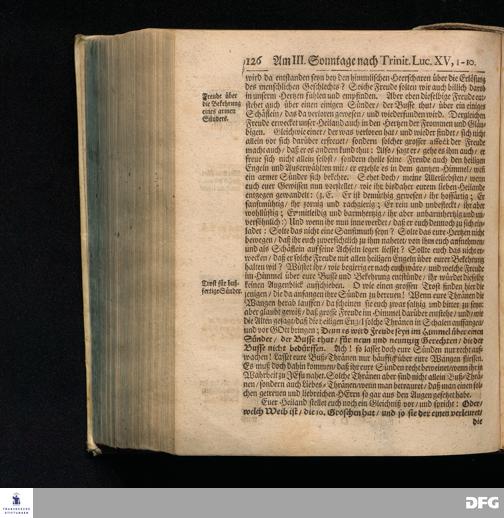 126 Am III. Sonntage nach Trinit. Luc. XV, 1-10.
wird da enstanden seyn bey den himmlischen Heerscharen über die Erlösung
des menschlichen Geschlechts? Solche Freude solten wir auch billich darob
in unserm Hertzen fühlen und empfinden. Aber eben dieselbige Freude ent-
stehet auch über einen einigen Sünder/ der Busse thut/ über ein einiges
Schäflein/ das da verloren gewesen/ und wiederfunden wird. Dergleichen
Freude erwecket unser Heiland auch in den Hertzen der Frommen und Gläu-
bigen. Gleichwie einer/ der was verloren hat/ und wieder findet/ sich nicht
allein vor sich darüber erfreuet/ sondern solcher grosser affect der Freude
macht auch/ daß er es andern kund thut: Also/ sagt er/ gehe es ihm auch/ er
freue sich nicht allein selbst/ sondern theile seine Freude auch den heiligen
Engeln und Auserwählten mit/ er erzehle es in dem gantzen Himmel/ wenn
ein armer Sünder sich bekehre. Sehet doch/ meine Allerliebsten/ wenn
euch euer Gewissen nun vorstellet/ wie ihr bisdaher eurem lieben Heilande
entgegen gewandelt: (z. E. Er ist demüthig gewesen/ ihr hoffärtig; Er
sanftmüthig/ ihr zornig und rachgierig; Er rein und unbefleckt/ ihr aber
wohllüstig; Er mitleidig und barmhertzig/ ihr aber unbarmhertzig und un-
versöhnlich:) Und wenn ihr nun inne werdet/ daß er euch dennoch zu sich ein-
ladet: Solte das nicht eine Sanftmuth seyn? Solte das eure Hertzen nicht
bewegen/ daß ihr euch zuversichtlich zu ihm nahetet/ von ihm euch aufnehmen
und als Schäflein auf seine Achseln legen liesset? Sollte euch das nicht er-
wecken/ daß er solche Freude mit allen heiligen Engeln über eurer Bekehrung
halten will? Wüstet ihr/ wie begierig er nach euch wäre/ und welche Freude
im Himmel über eure Busse und Bekehrung entstünde/ ihr würdet dieselbe
keinen Augenblick aufschieben. O wie einen grossen Trost finden hier die-
jenigen/ die da anfangen ihre Sünden zu bereuen! Wenn eure Thränen die
Wangen herab lauffen/ da scheinen sie euch zwar saltzig und bitter zu seyn:
aber glaubt gewiß/ daß grosse Freude im Himmel darüber entstehe/ und/ wie
die Alten gesagt/ daß die heiligen Engel solche Thränen in Schalen auffangen
und vor GOtt bringen; Denn es wird Freude seyn im Himmel über einen
Sünder/ der Busse thut/ für neun und neuntzig Gerechten/ die der
Busse nicht bedürffen. Ach! so lasset doch eure Sünden nur recht auf-
wachen! Lasset eure Buß-Thränen nur häuffig über eure Wangen fliessen.
Es muß doch dahin kommen/ daß ihr eure Sünden recht beweinet/ wenn ihr in
Wahrheit zu JEsu nahet. Solche Thränen aber sind nicht allein Buß-Thrä-
nen/ sondern auch Liebes-Thränen/ wenn man betrauret/ daß man einen sol-
chen getreuen und liebreichen HErrn so gar aus den Augen gesetzet habe.
Euer Heiland stellet euch noch ein Gleichniß vor/ und spricht: Oder/
welch Weib ist/ die 10. Groschen hat/ und so sie der einen verleuret/
die
Freude über
die Bekehrung
eines armen
Sünders.
Trost für buß-
fertige Sünder.
FRANCKESCHE
STIFTUNGEN
DFG